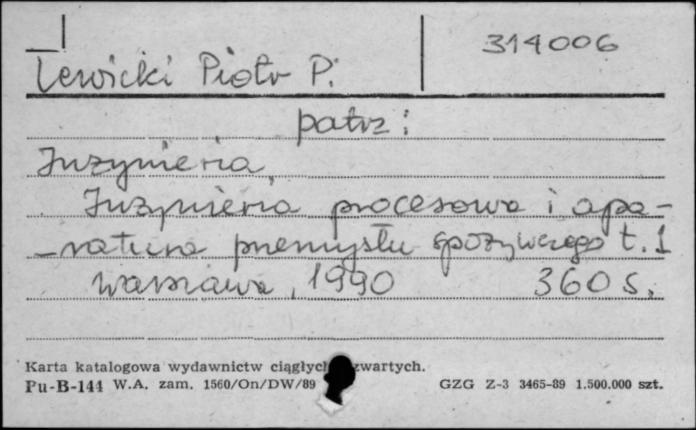 314006
Lewicki Piotr P.
patrz:
Inżynieria
Inżynieria procesowa i apa-
ratura przemysłu spożywczego t. 1
Warszawa, 1990 360 s.
Karta katalogowa wydawnictw ciągłych zwartych.
Pu-B-144 W.A. zam. 1560/On/DW/89 GZG Z-3 3465-89 1.500.000 szt.